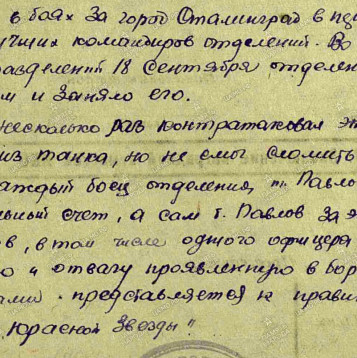 в боях за город Сталинград в
учших командиров отделений. Во
разделений 18 Сентября отделен
м и заняло его.
несколько раз контратаковал
из танка, но не смог сломить
аждый боец отделения, т. Павло
льный счет, а сам т. Павлов за
в, в том числе одного офицера
ю и отвагу проявленную в бор
ами. представляется к прави
Красной Звезды"